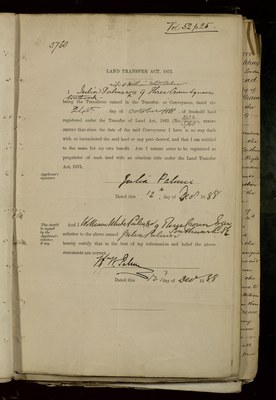 Vol. 52 p 25
5760
LAND TRANSFER ACT, 1875.
wife of William
I Julia Palmer of Three Crown Square
Southwark
being the Transferee named in the Transfer or Conveyance, dated the
day of October 1888 of freehold land
registered under the Transfer of Land Act, 1862 (No.
that since the date of the said Conveyance I have in no way dealt
with or incumbered the said land or any part thereof, and that I am entitled
to the same for my own benefit. Also I consent to be registered as
proprietor of such land with an absolute title under the Land Transfer
Act, 1875.
Applicant's
signature
Julia Palmer
Dated this 12th day of Decr 1888
This should
be signed
by the
Applicant's
solicitor
if any
And I William of Three Crown Square
Southwark SE
solicitor to the above named Julia Palmer
hereby certify that to the best of my information and belief the above
statements are correct.
Dated this 12 day of Decr 1888